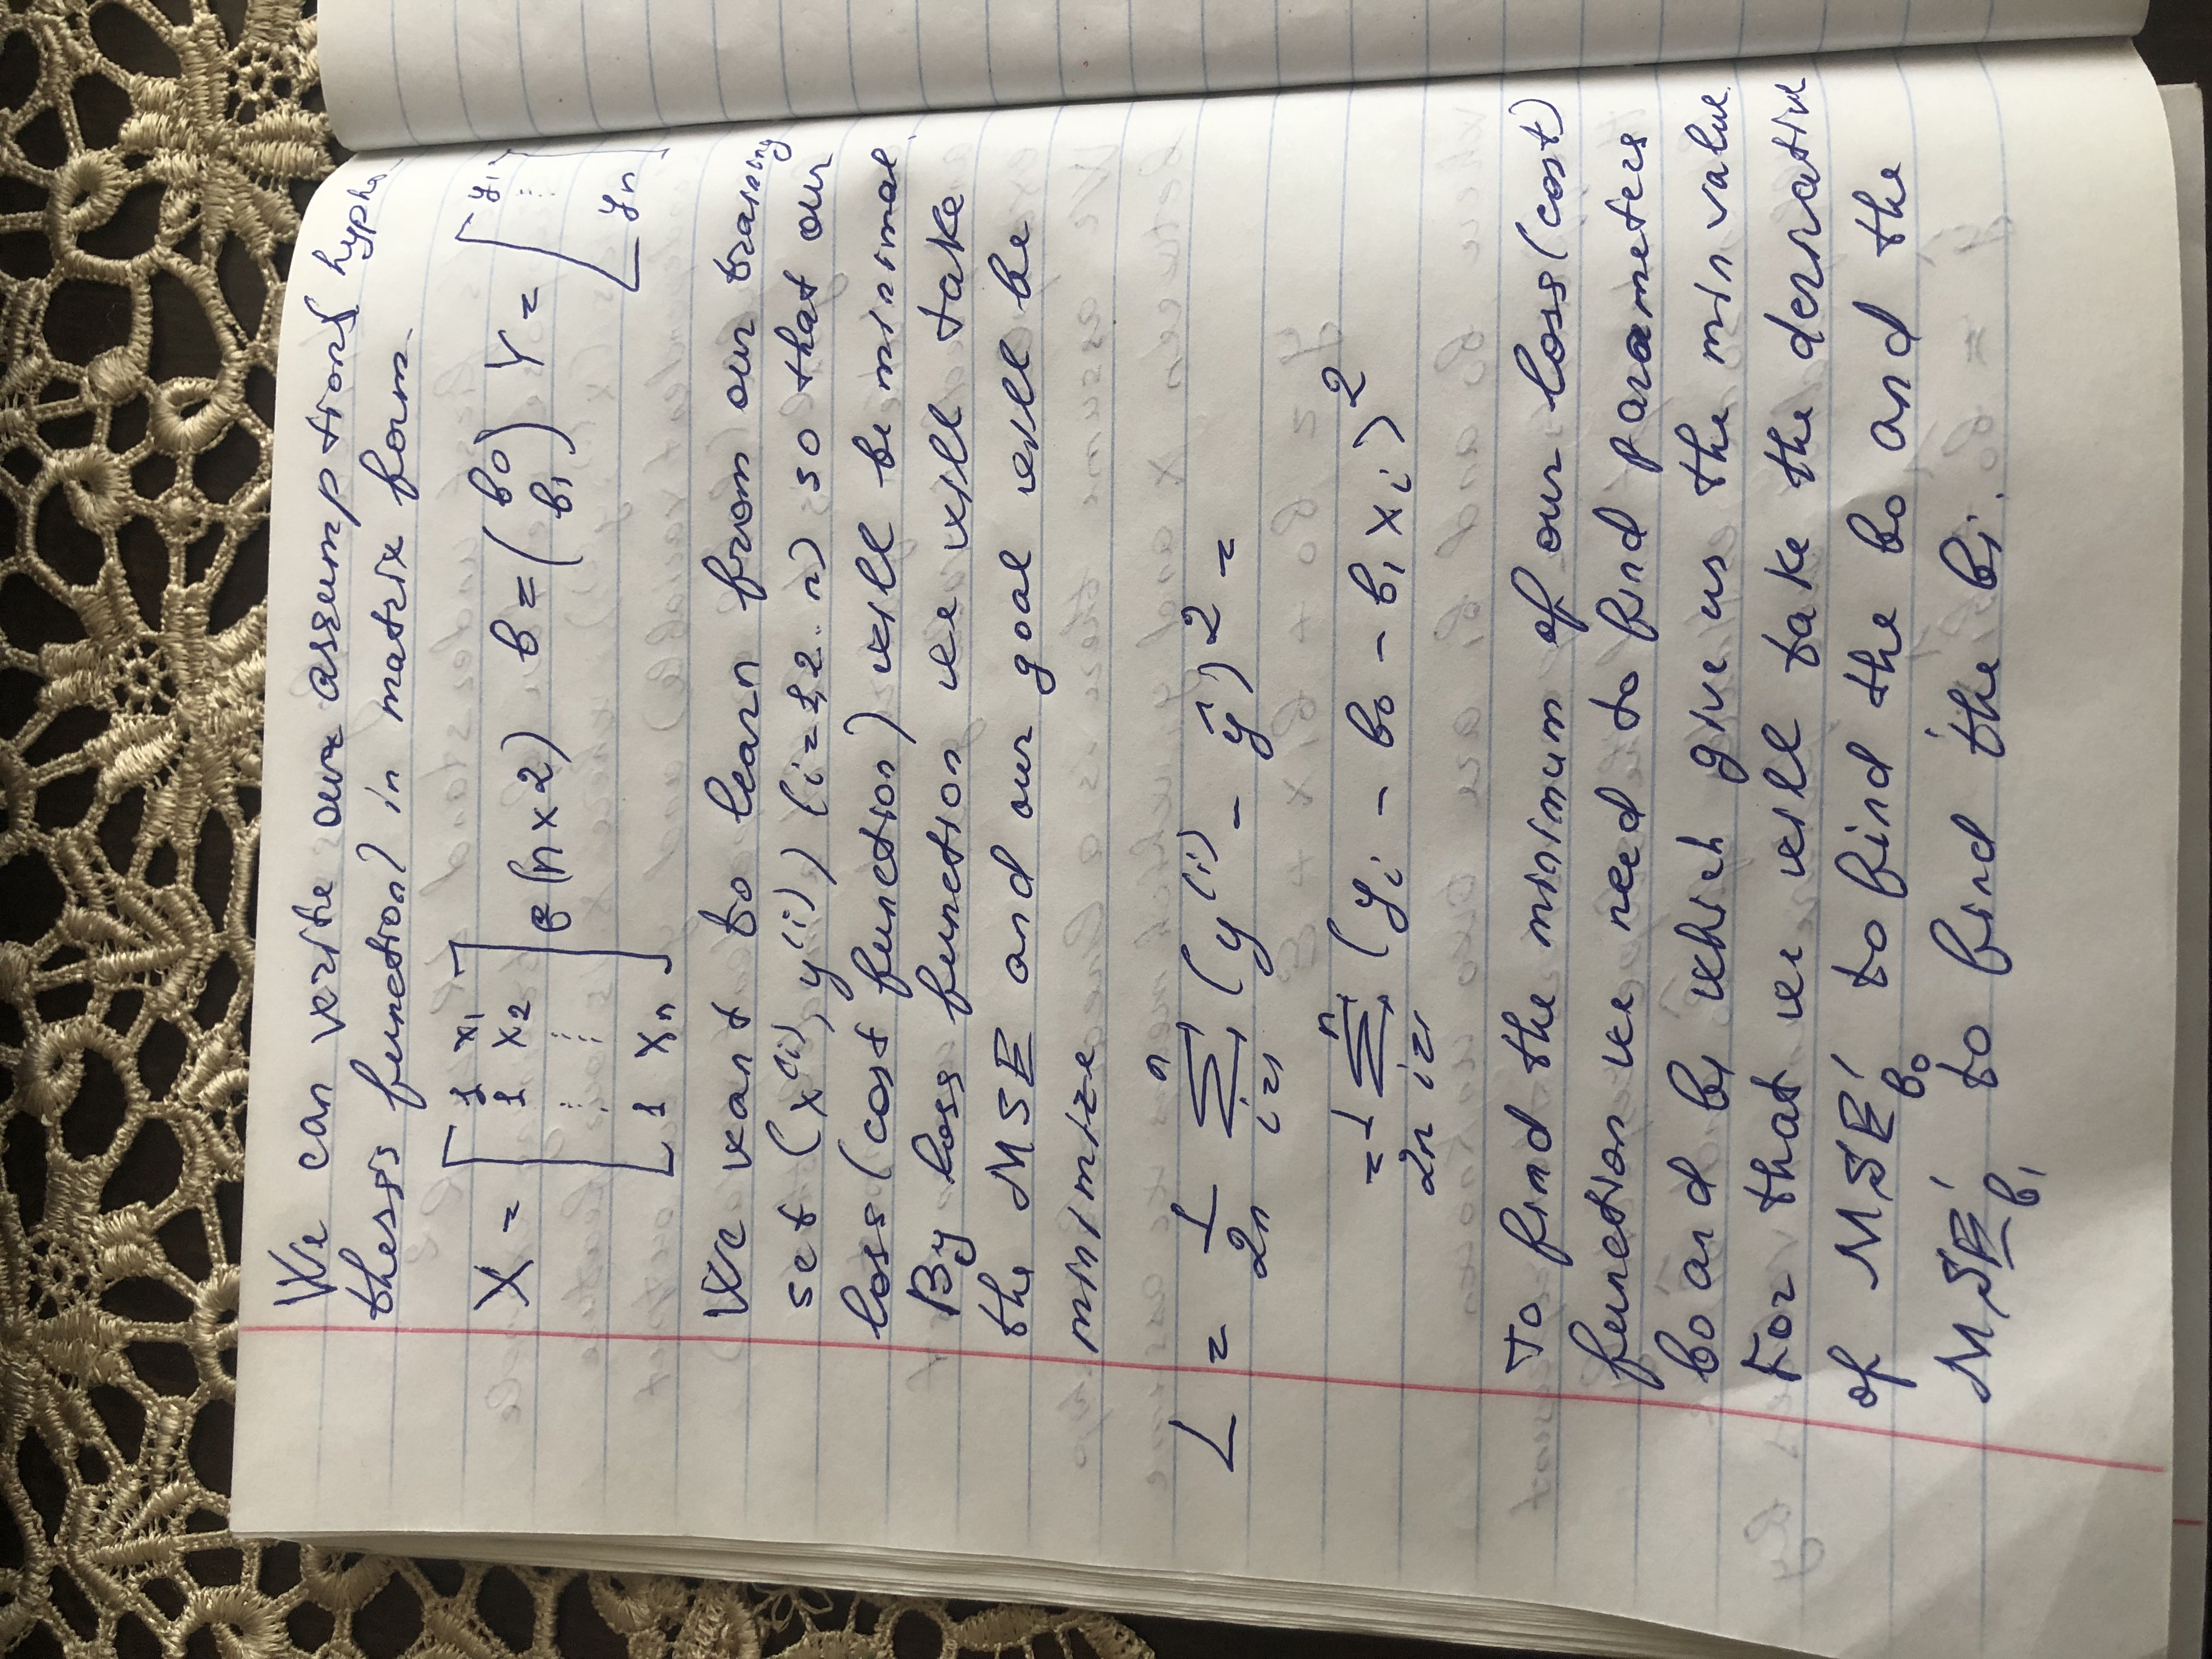 We can write our assumptions hypho
thesis function) in matrix form.
X = [ 1 x₁ ; 1 x₂ ; ⋮ ⋮ ; 1 xₙ ] ∈ (n×2) b = ( b₀ ; b₁ ) Y = [ y₁ ; ⋮ ; yₙ ]
We want to learn from our training
set (x⁽ⁱ⁾, y⁽ⁱ⁾) (i=1,2..n) so that our
loss (cost function) will be minimal.
By loss function we will take
the MSE and our goal will be
minimize
L = 1/2n Σᵢ₌₁ⁿ (y⁽ⁱ⁾ - ŷ)² =
= 1/2n Σᵢ₌₁ⁿ (yᵢ - b₀ - b₁xᵢ)²
To find the minimum of our loss (cost)
function we need to find parameters
b₀ and b₁ which give us the min value.
For that we will take the derivative
of MSE'b₀ to find the b₀ and the
MSE'b₁ to find the b₁.